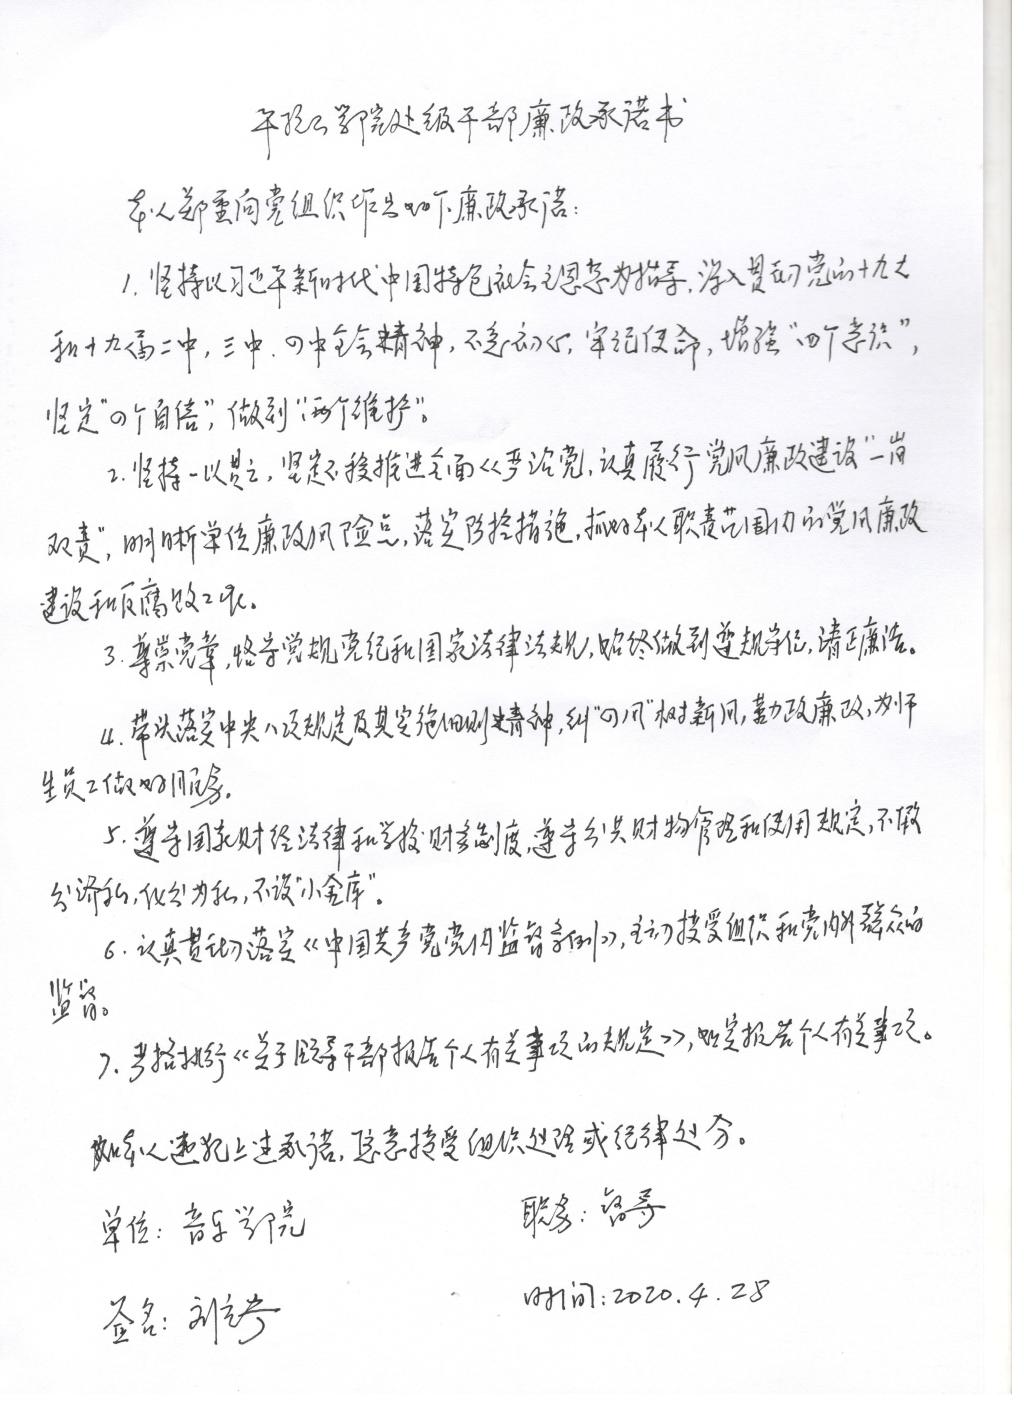 平顶山学院处级干部廉政承诺书
本人郑重向党组织作出如下廉政承诺:
1. 坚持以习近平新时代中国特色社会主义思想为指导,深入贯彻党的十九大
和十九届二中,三中、四中全会精神,不忘初心,牢记使命,增强“四个意识”,
坚定“四个自信”,做到“两个维护”。
2. 坚持一以贯之,坚定不移推进全面从严治党,认真履行党风廉政建设“一岗
双责”,明晰单位廉政风险点,落实防控措施,抓好本人职责范围内的党风廉政
建设和反腐败工作。
3. 尊崇党章,恪守党规党纪和国家法律法规,始终做到遵规守纪,清正廉洁。
4. 带头落实中央八项规定及其实施细则精神,纠“四风”树新风,勤政廉政,为师
生员工做好服务。
5. 遵守国家财经法律和学校财务制度,遵守公共财物管理和使用规定,不假
公济私,化公为私,不设“小金库”。
6. 认真贯彻落实《中国共产党党内监督条例》,主动接受组织和党内外群众的
监督。
7. 严格执行《关于领导干部报告个人有关事项的规定》,如实报告个人有关事项。
如本人违犯上述承诺,愿意接受组织处理或纪律处分。
单位: 音乐学院
职务: 督导
签名: 刘
时间: 2020.4.28